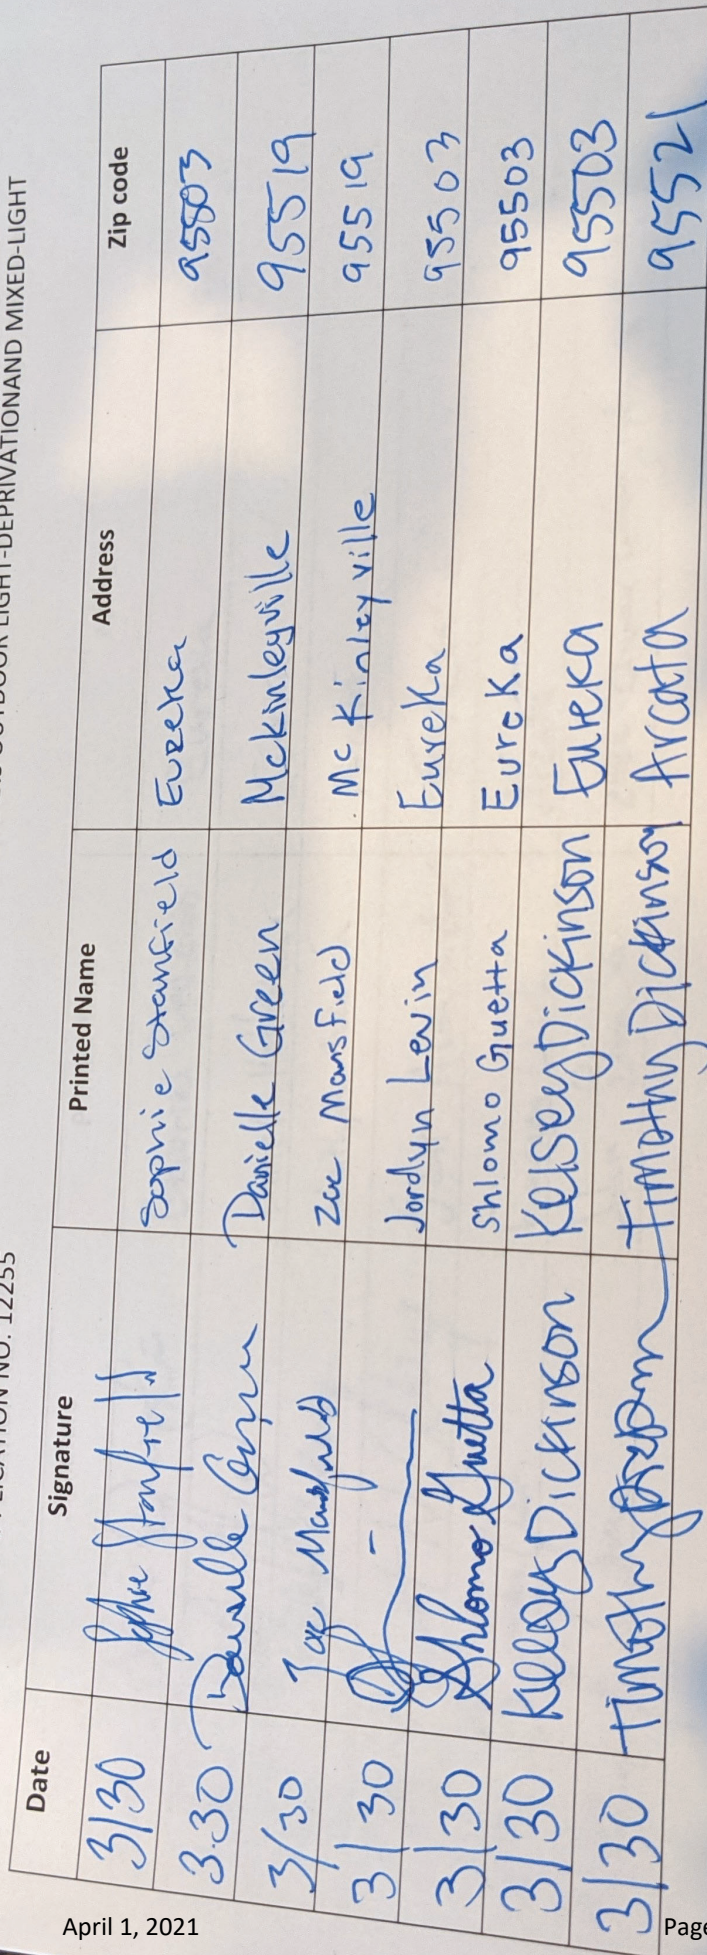 LICATION NO. 12255
OUTDOOR LIGHT-DEPRIVATIONAND MIXED-LIGHT
Date Signature Printed Name Address Zip code
3/30 Sophie Stanfield Sophie Stanfield Eureka 95503
3.30 Danielle Green Danielle Green Mckinleyville 95519
3/30 Zac Mansfield Zac Mansfield McKinleyville 95519
3/30 Jordyn Levin Eureka 95503
3/30 Shlomo Guetta Shlomo Guetta Eureka 95503
3/30 Kelsey Dickinson Kelsey Dickinson Eureka 95503
3/30 Timothy Dickinson Timothy Dickinson Arcata 95521
April 1, 2021
Page